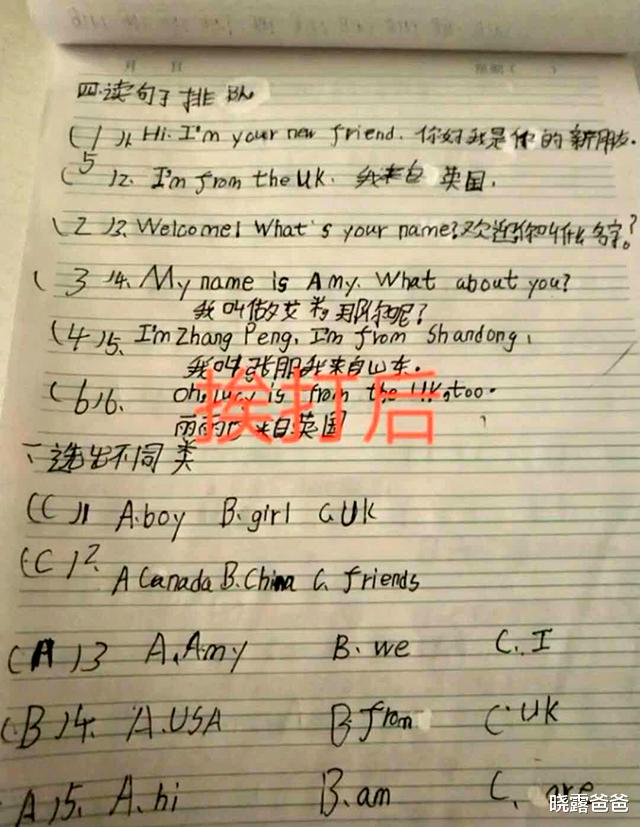 月 日 星期（ ）
四.读句子排队
(1)1. Hi. I'm your new friend. 你好我是你的新朋友.
(5)2. I'm from the UK. 我来自英国.
(2)3. Welcome! What's your name? 欢迎你叫什么名字？
(3)4. My name is Amy. What about you?
我叫做艾米,那你呢？
(4)5. I'm Zhang Peng, I'm from Shandong.
我叫张朋我来自山东.
(6)6. Oh, Lucy is from the UK, too.
来自英国
挨打后
一、选出不同类
(C)1 A.boy B.girl C.UK
(C)2. A Canada B.China C. friends
(A)3 A.Amy B. we C. I
(B)4. A.USA B from C UK
A)5. A. hi B. am C. are
晓露爸爸